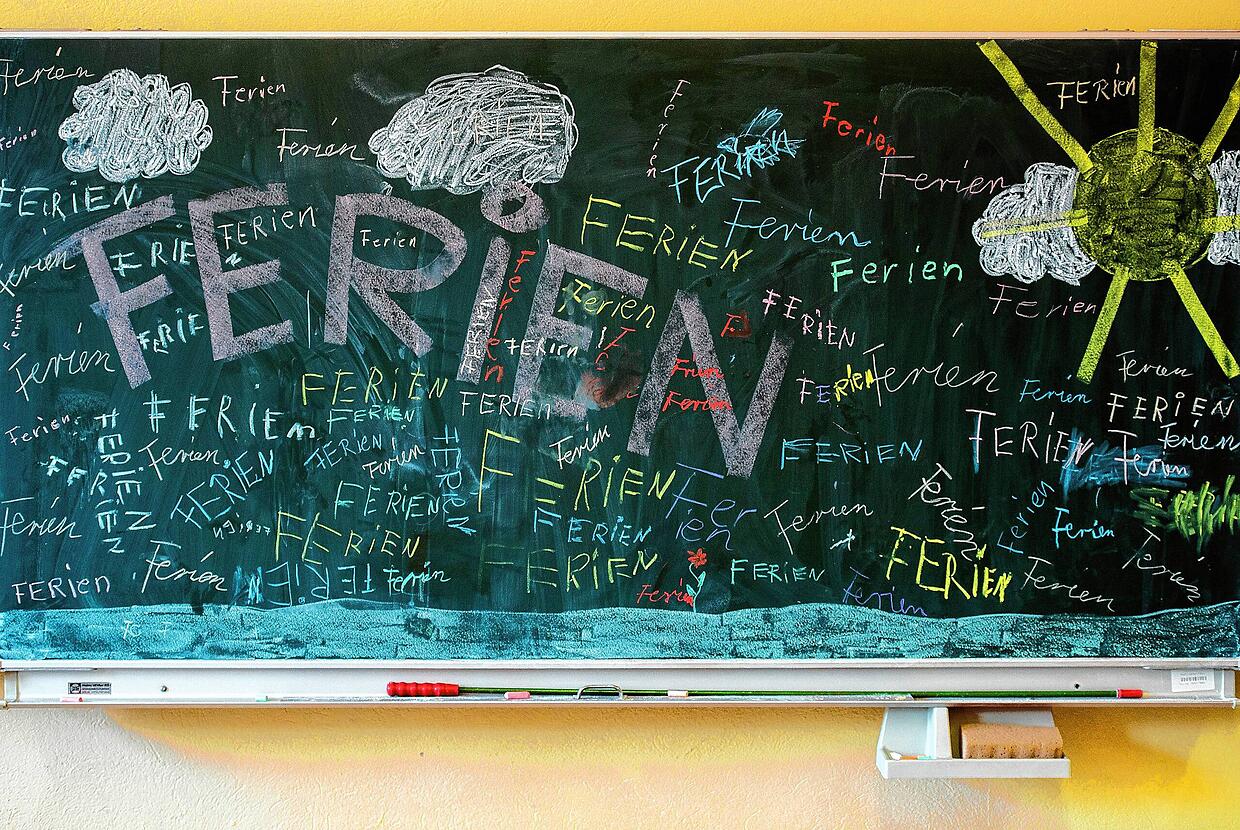 Ferien
Ferien
Ferien
FERIEN
Ferien
Ferien
Ferien
Ferien
Ferien
FERIEN
FERIEN
FERIEN
FERIEN
Ferien
FERIEN
Ferien
Ferien
Ferien
FERIE
Ferien
Ferien
Ferien
Ferien
FERIEN
Ferien
FERIE
FERIEN
FERIEN
Ferien
Ferien
FERIEN
Ferien
Ferien
FERIEN
Ferien
FERIEN
FERIEN
FERIEN
Ferien
FERIEN
FERIEN
Ferien
FERIEN
Ferien
FERIEN
Ferien
FERIEN
Ferien
Ferien
FERIEN
FERIEN
FERIEN
FERIEN
Ferien
FERIEN
Fer
ien
Ferien
Ferien
Ferien
Ferien
Ferien
FERIEN
FERIEN
FERIEN
FERIEN
Ferien
Ferien
FERIEN
Ferien
FERIEN
Ferien
Ferien
Ferien